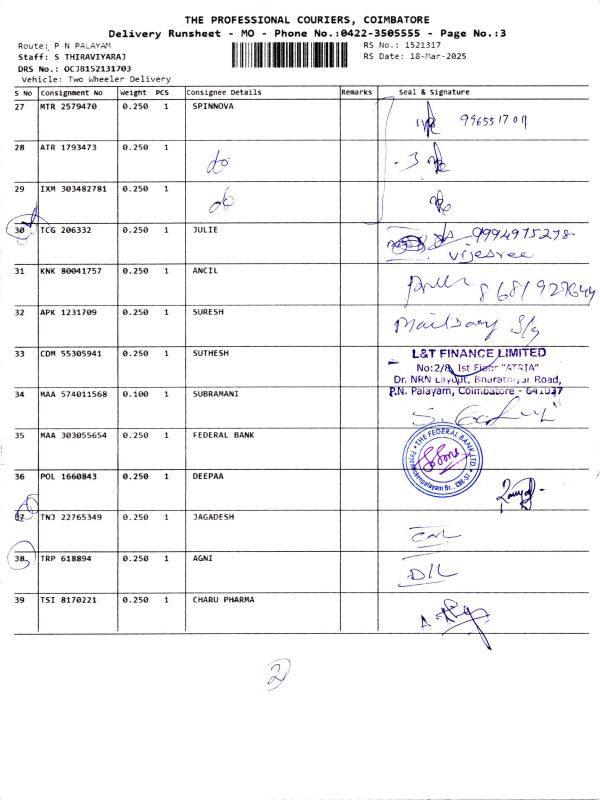 THE PROFESSIONAL COURIERS, COIMBATORE
Delivery Runsheet - MO - Phone No.:0422-3505555 - Page No.:3
Route: P N PALAYAM
Staff: S THIRAVIYARAJ
DRS No.: OCJB152131703
Vehicle: Two Wheeler Delivery
RS No.: 1521317
RS Date: 18-Mar-2025
S No Consignment No Weight PCS Consignee Details Remarks Seal & Signature
27 MTR 2579470 0.250 1 SPINNOVA
28 ATR 1793473 0.250 1 do
29 IXM 303482781 0.250 1 do
30 TCG 206332 0.250 1 JULIE 9994975278
vijesree
31 KNK 80041757 0.250 1 ANCIL
32 APK 1231709 0.250 1 SURESH
33 CDM 55305941 0.250 1 SUTHESH L&T FINANCE LIMITED
No:2/8, 1st Floor "ATRIA"
Dr. NRN Layout, Bharathiyar Road,
P.N. Palayam, Coimbatore - 641037
34 MAA 574011568 0.100 1 SUBRAMANI
35 MAA 303055654 0.250 1 FEDERAL BANK THE FEDERAL BANK LTD.
36 POL 1660843 0.250 1 DEEPAA
37 TNJ 22765349 0.250 1 JAGADESH
38 TRP 618894 0.250 1 AGNI D/L
39 TSI 8170221 0.250 1 CHARU PHARMA
2